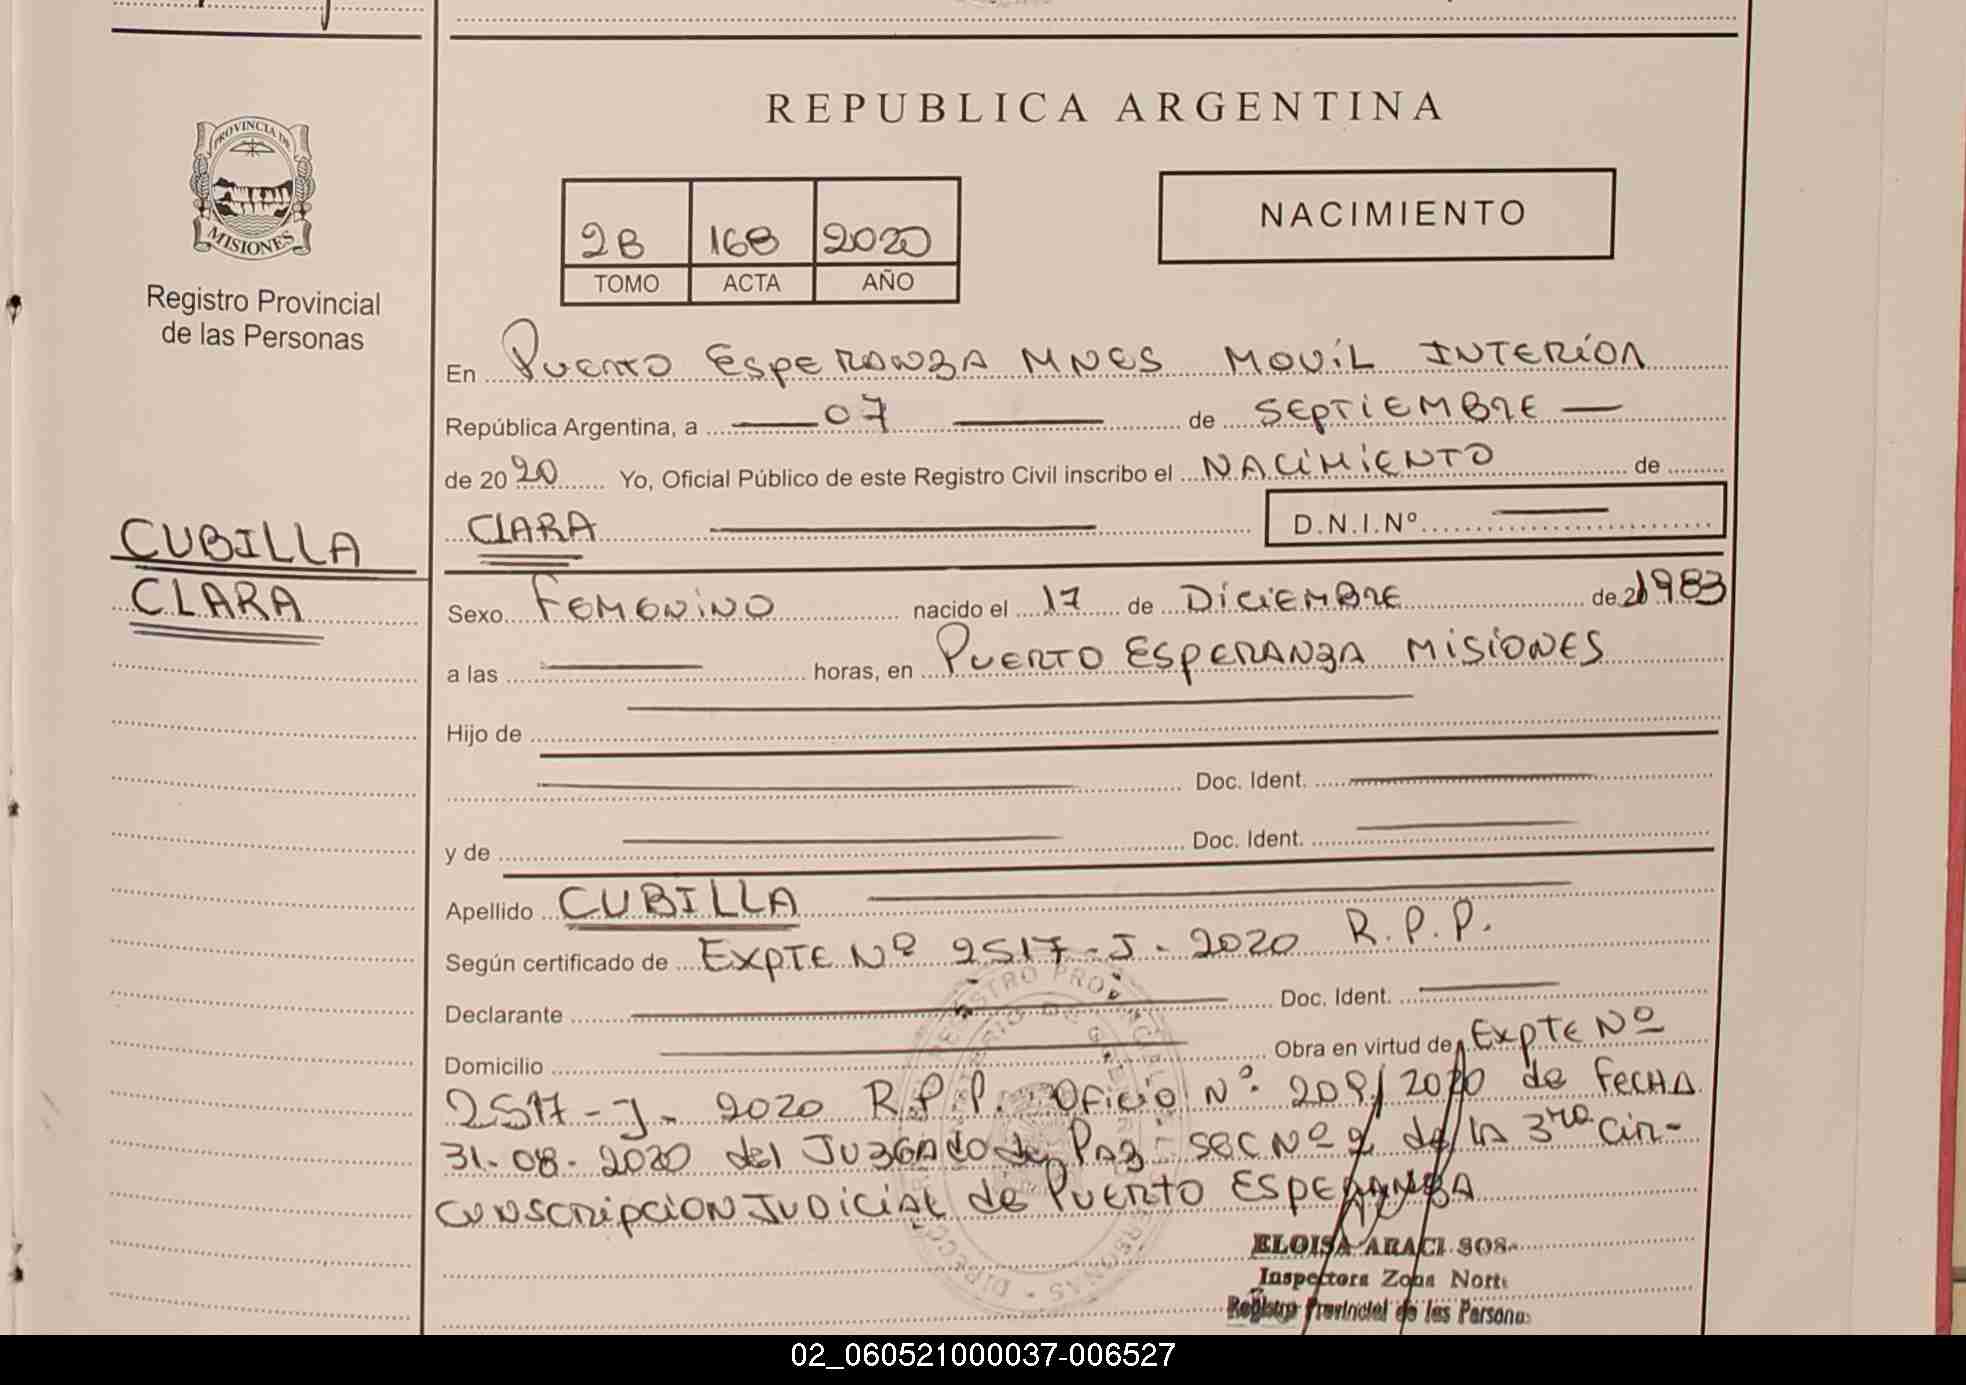 REPUBLICA ARGENTINA
PROVINCIA DE
MISIONES
Registro Provincial
de las Personas
2B 168 2020
TOMO ACTA AÑO
NACIMIENTO
En Puerto Esperanza Mnes Movil Interior
República Argentina, a 07 de Septiembre
de 2020 Yo, Oficial Público de este Registro Civil inscribo el NACIMIENTO de
CLARA D.N.I.Nº
CUBILLA
CLARA
Sexo Femenino nacido el 17 de Diciembre de 1983
a las horas, en Puerto Esperanza Misiones
Hijo de
Doc. Ident.
y de Doc. Ident.
Apellido CUBILLA
Según certificado de Expte Nº 2517-J-2020 R.P.P.
Declarante Doc. Ident.
Domicilio Obra en virtud de Expte Nº
2517-J-2020 R.P.P. Oficio Nº 209/2020 de Fecha
31-08-2020 del Juzgado de Paz Sec Nº 2 de la 3ra Cir-
cunscripcion Judicial de Puerto Esperanza
ELOISA ARACI SOS
Inspectora Zona Norte
Registro Provincial de las Personas
02_060521000037-006527